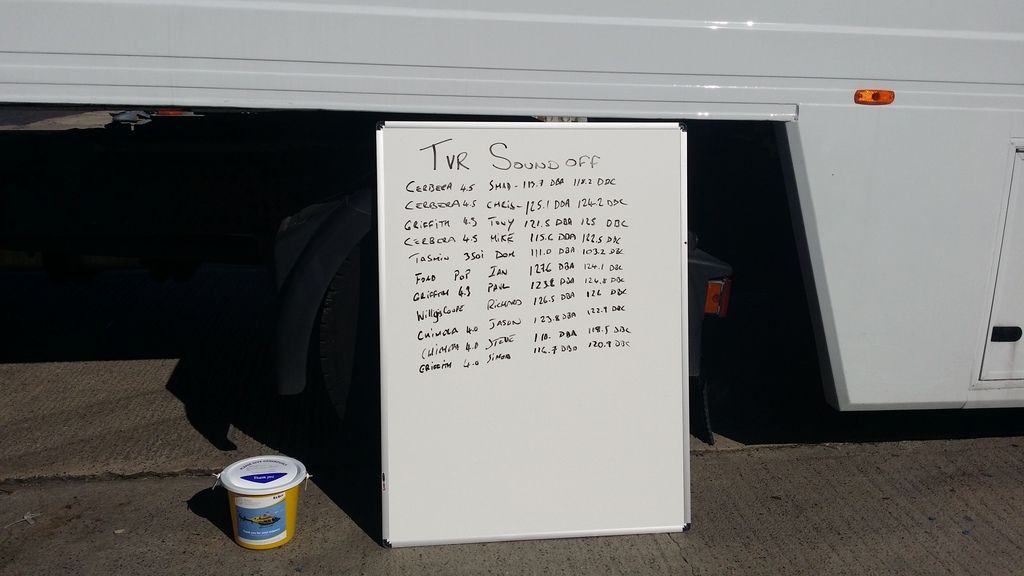 TVR SOUND OFF
CERBERA 4.5 SHAD - 113.7 DBA 118.2 DBC
CERBERA 4.5 CHRIS - 125.1 DBA 124.2 DBC
GRIFFITH 4.3 TONY 121.5 DBA 125 DBC
CERBERA 4.5 MIKE 115.6 DBA 122.5 DBC
TASMIN 350i DOM 111.0 DBA 103.2 DBC
FORD POP IAN 127.6 DBA 124.1 DBC
GRIFFITH 4.3 PAUL 123.8 DBA 124.8 DBC
Willys COUPE RICHARD 126.5 DBA 126 DBC
CHIMERA 4.0 JASON 123.8 DBA 122.9 DBC
CHIMERA 4.0 STEVE 118.5 DBC
GRIFFITH 4.0 SIMON 116.7 DBA 120.9 DBC
Thank you